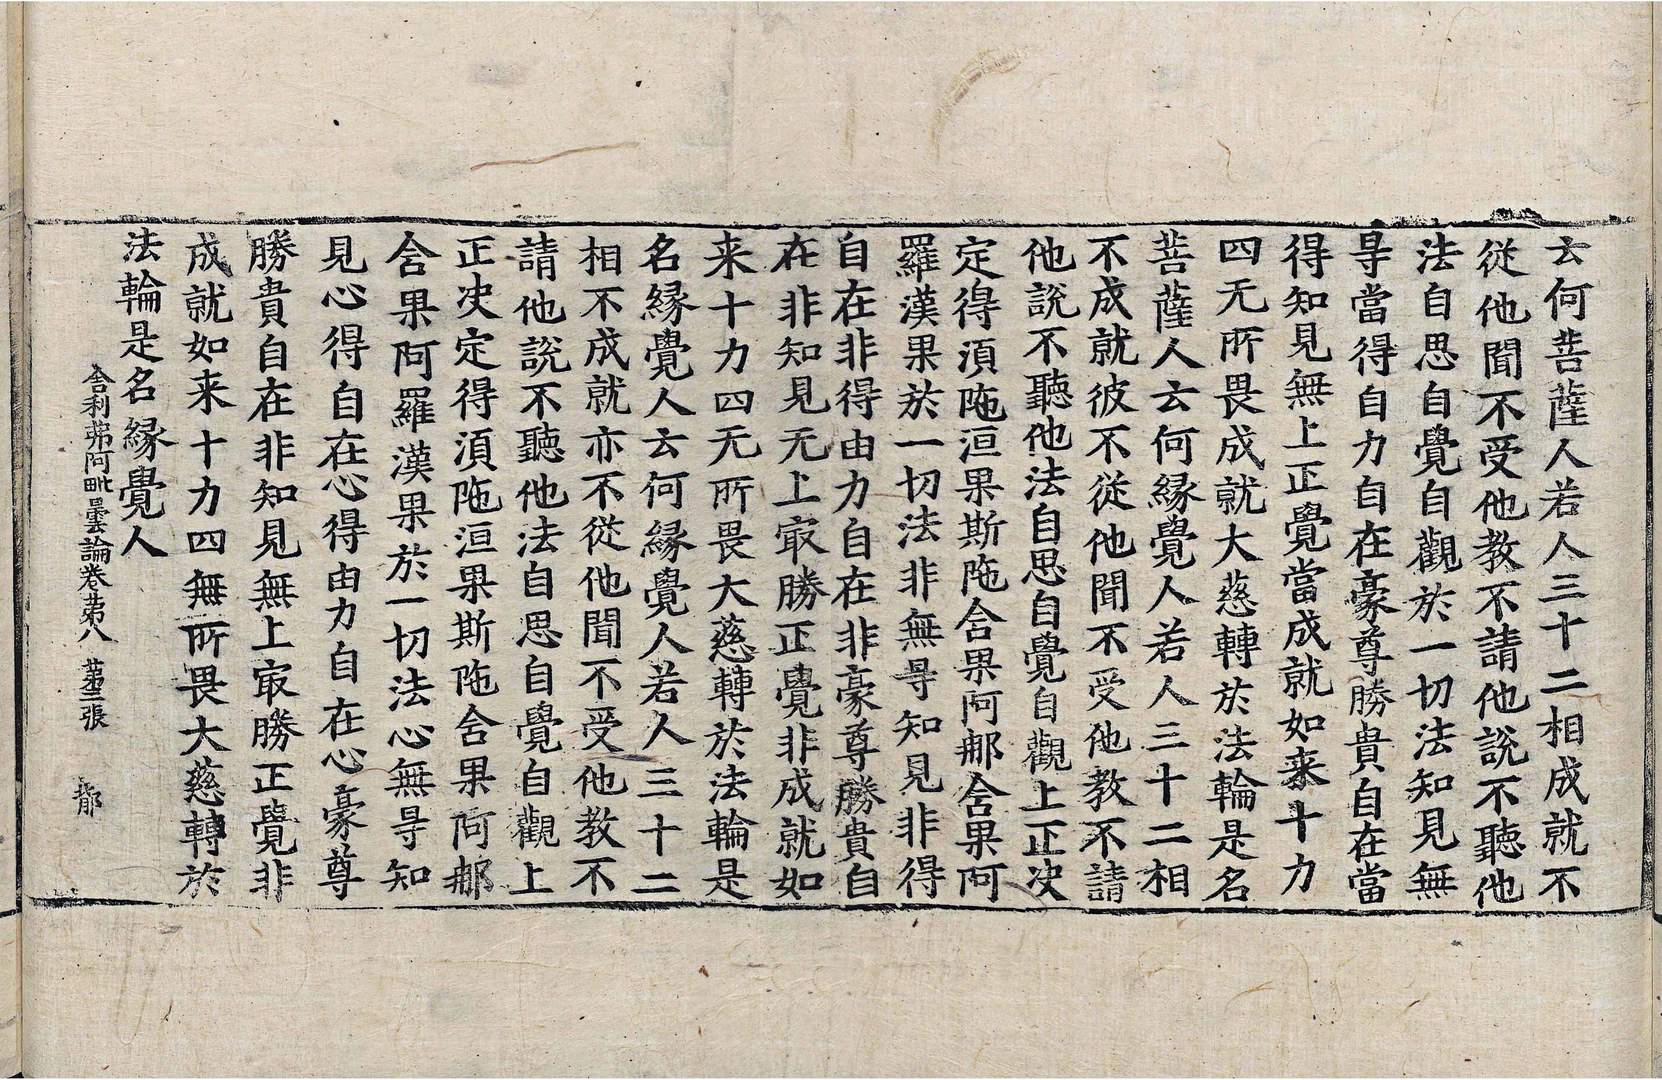 云何菩薩人若人三十二相成就不
從他聞不受他教不請他說不聽他
法自思自覺自觀於一切法知見無
㝵當得自力自在豪尊勝貴自在當
得知見無上正覺當成就如来十力
四无所畏成就大慈轉於法輪是名
菩薩人云何縁覺人若人三十二相
不成就彼不從他聞不受他教不請
他說不聽他法自思自覺自觀上正决
定得湏陁洹果斯陁含果阿𨚗含果阿
羅漢果於一切法非無㝵知見非得
自在非得由力自在非豪尊勝貴自
在非知見无上㝡勝正覺非成就如
来十力四无所畏大慈轉於法輪是
名縁覺人云何縁覺人若人三十二
相不成就亦不從他聞不受他教不
請他說不聽他法自思自覺自觀上
正决定得湏陁洹果斯陁含果阿𨚗
含果阿羅漢果於一切法心無㝵知
見心得自在心得由力自在心豪尊
勝貴自在非知見無上㝡勝正覺非
成就如来十力四無所畏大慈轉於
法輪是名縁覺人
舍利弗阿毗曇論卷苐八 苐三張